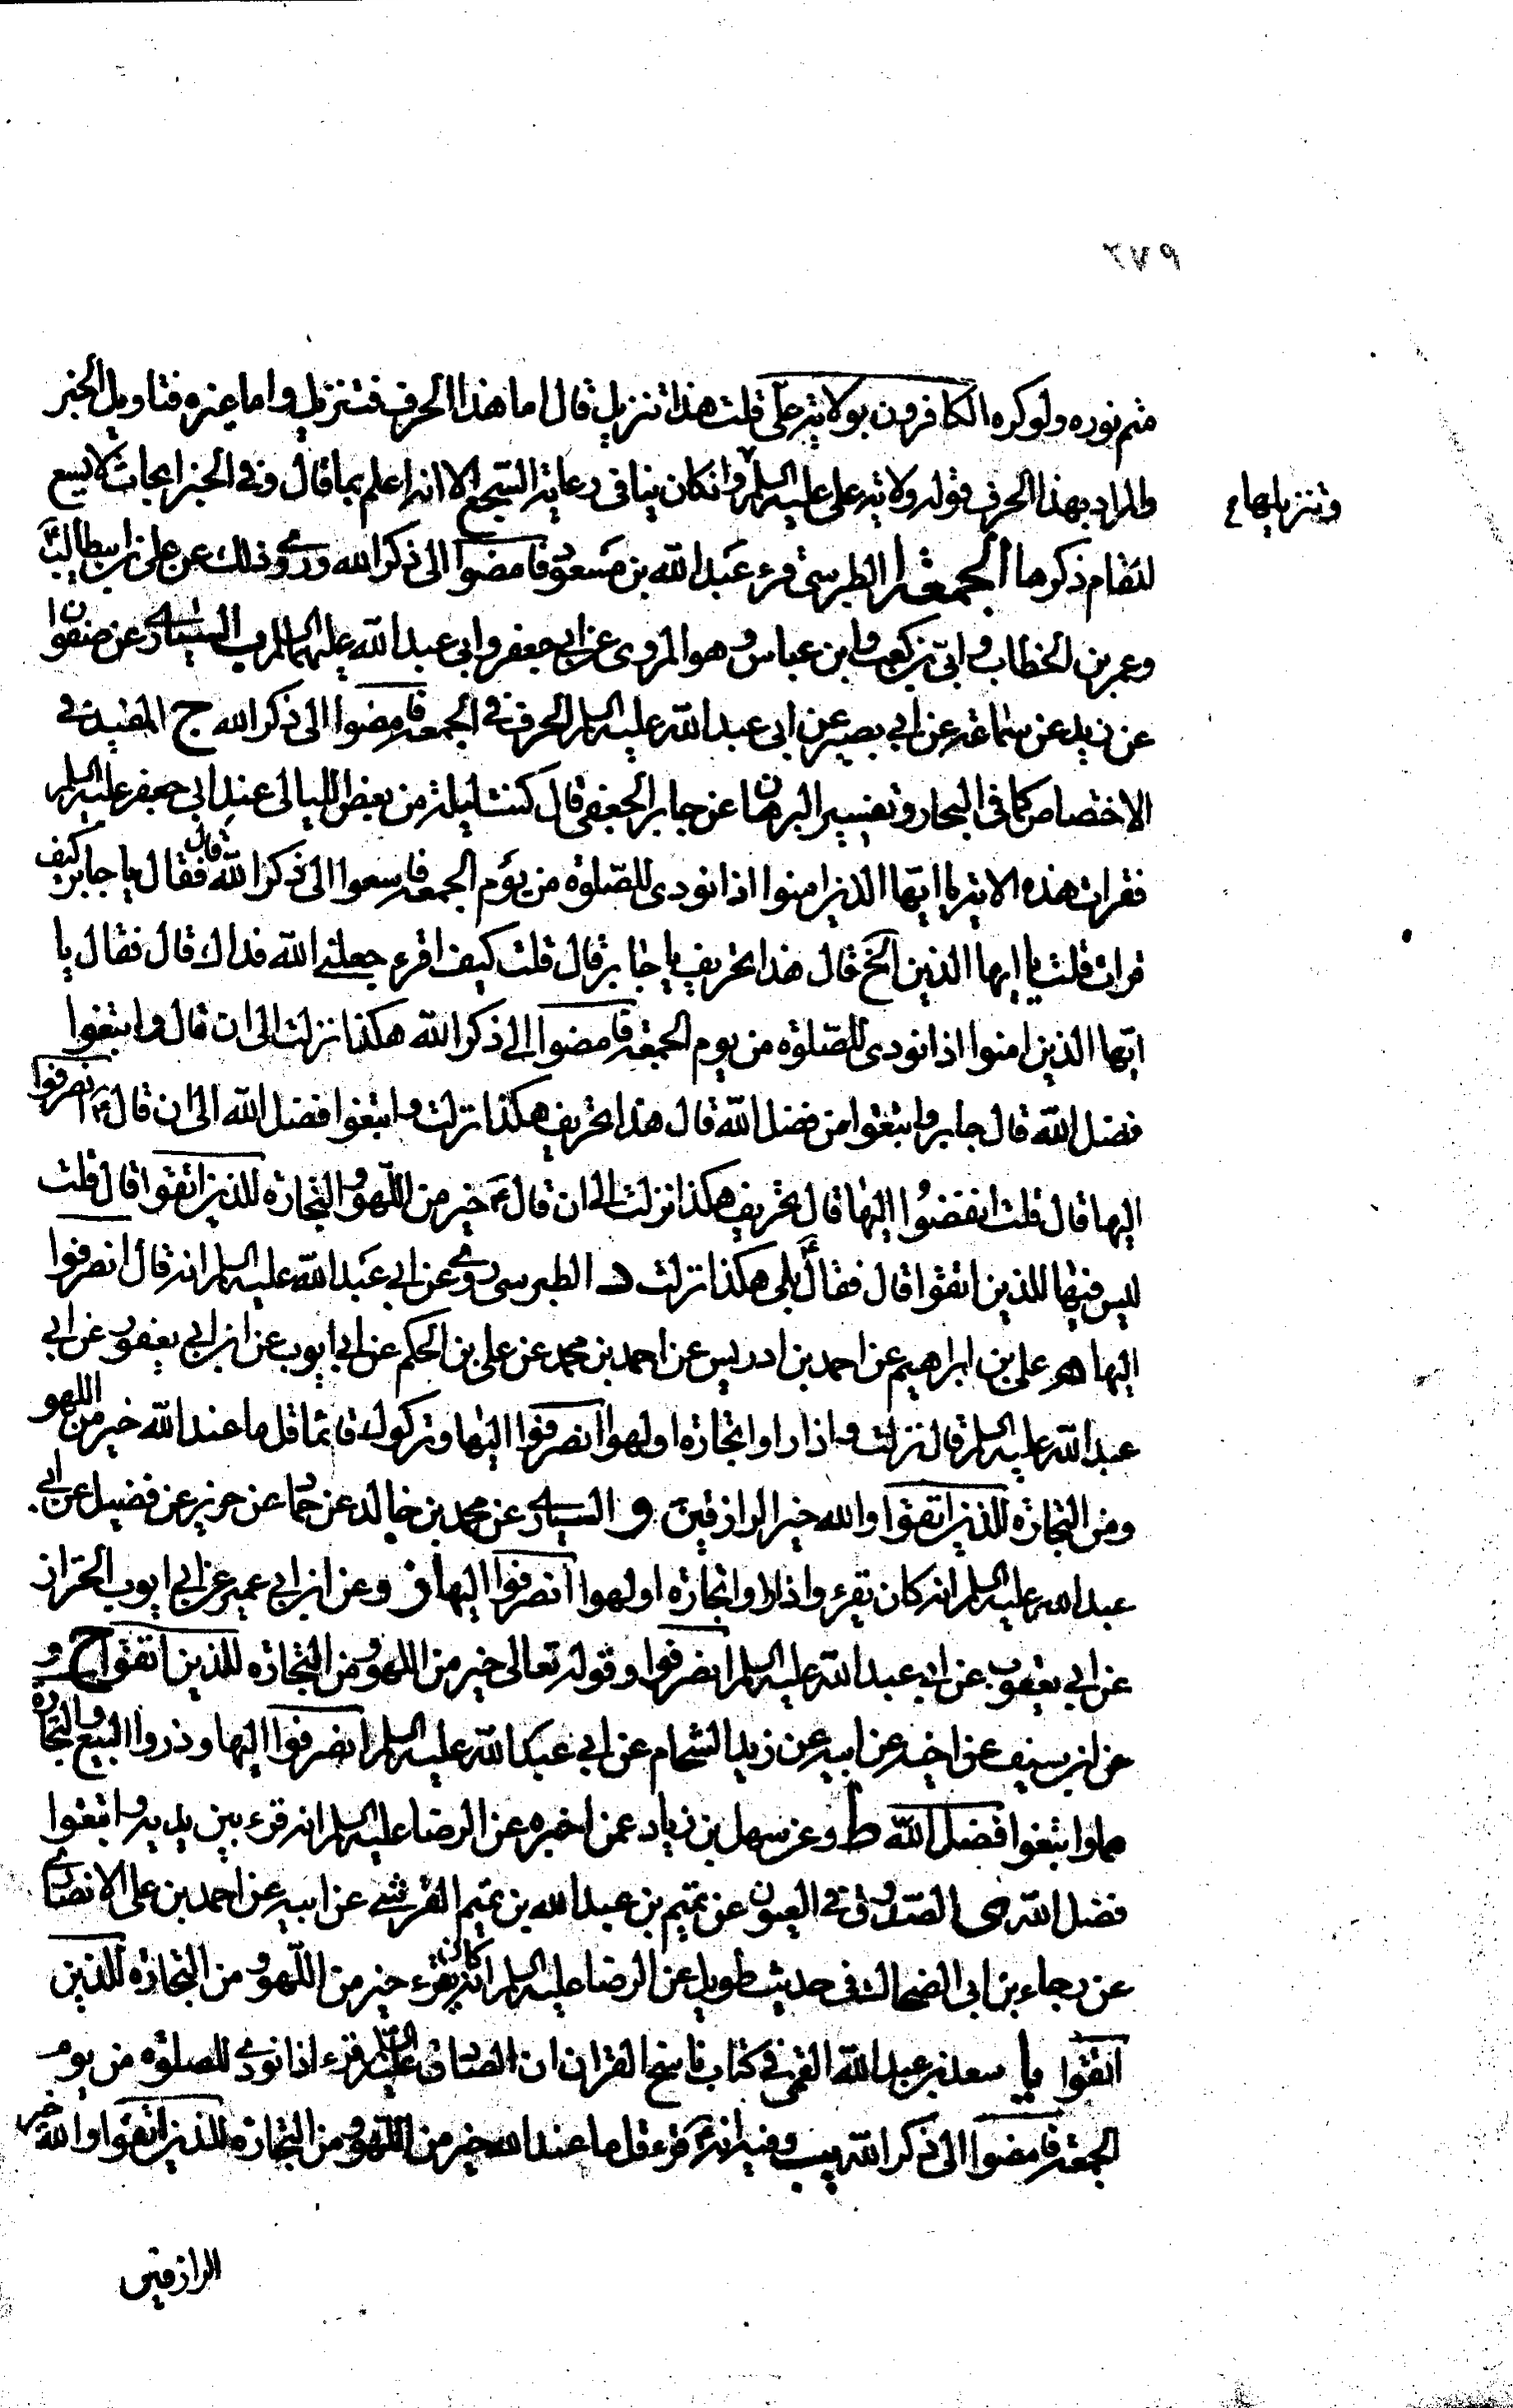 متم نوره ولوكره الكافرون بولاية علي قلت هذا تنزيل قال اما هذا الحرف فتنزيل واما غيره فتاويل الخبر
والمراد بهذا الحرف قوله ولاية على عليه السلم وانكان ينافى رعاية السجع الا انه اعلم بما قال وفى الخبر ابحاث لايسع
وتنزيلها ع
المقام ذكرها الجمعة ا الطبرسى قرء عبد الله بن مسعود فامضوا الى ذكر الله وروى ذلك عن على بن ابيطالب
وعمر بن الخطاب وابى بن كعب وابن عباس وهو المروى عن ابى جعفر وابى عبد الله عليهما السلم ب السيارى عن صفوان
عن زيد عن سماعة عن ابي بصير عن ابى عبد الله عليه السلم الحرف في الجمعة فامضوا الى ذكر الله ج المفيد في
الاختصاص كما في البحار وتفسير البرهان عن جابر الجعفى قال كنت ليلة من بعض الليالى عند ابي جعفر عليه السلم
فقرات هذه الاية يا ايها الذين امنوا اذا نودى للصلوة من يوم الجمعة فاسعوا الى ذكر الله قال فقال يا جابر كيف
قرات قلت يا ايها الذين الخ قال هذا تحريف يا جابر قال قلت كيف اقرء جعلني الله فداك قال فقال يا
ايها الذين امنوا اذا نودى للصلوة من يوم الجمعة فامضوا الى ذكر الله هكذا نزلت الى ان قال وابتغوا
فضل الله قال جابر وابتغوا من فضل الله قال هذا تحريف هكذا نزلت وابتغوا فضل الله الى ان قال ع انصرفوا
اليها قال قلت انفضوا اليها قال تحريف هكذا نزلت الى ان قال ع خير من اللهو والتجارة للذين اتقوا قال قلت
ليس فيها للذين اتقوا قال فقال ع بلى هكذا نزلت د الطبرسى وروى عن ابي عبد الله عليه السلم انه قال انصرفوا
اليها ه على بن ابراهيم عن احمد بن ادريس عن احمد بن محمد عن على بن الحكم عن ابي ايوب عن ابن ابي يعفور عن ابي
عبد الله عليه السلم قال نزلت واذا راوا تجارة او لهوا انصرفوا اليها وتركوك قائما قل ما عند الله خير من اللهو
ومن التجارة للذين اتقوا والله خير الرازقين و السيارى عن محمد بن خالد عن حماد عن حريز عن فضيل عن ابي
عبد الله عليه السلم انه كان يقرء واذا راوا تجارة او لهوا انصرفوا اليها ز وعن ابن ابي عمير عن ابي ايوب الخزاز
عن ابي يعفور عن ابي عبد الله عليه السلم انصرفوا وقوله تعالى خير من اللهو ومن التجارة للذين اتقوا ح و
عن ابن سيف عن اخيه عن ابيه عن زيد الشحام عن ابي عبد الله عليه السلم انصرفوا اليها وذروا البيع والتجارة
وابتغوا فضل الله ط وعن سهل بن زياد عمن اخبره عن الرضا عليه السلم انه قرء بين يديه وابتغوا
فضل الله ى الصدوق في العيون عن تميم بن عبد الله بن تميم القرشي عن ابيه عن احمد بن على الانصارى
عن رجاء بن ابى الضحاك فى حديث طويل عن الرضا عليه السلم انه كان يقرء خير من اللهو ومن التجارة للذين
اتقوا يا سعد بن عبد الله القمى في كتاب ناسخ القران ان الصادق عليه السلم قرء اذا نودى للصلوة من يوم
الجمعة فامضوا الى ذكر الله يب وفيه انه ع قرء قل ما عند الله خير من اللهو ومن التجارة للذين اتقوا والله خير
الرازقين